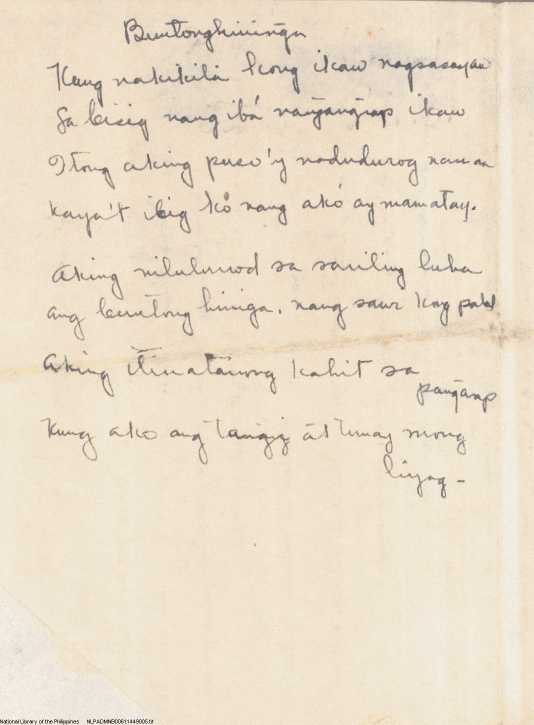 Buntonghininga
Kung nakikita kong ikaw nagsasayaw
Sa bisig nang ibá nangangrap ikaw
Itong aking puso'y nadudurog naman
kaya't ibig ko nang akó ay mamatay.
Aking nilulunod sa sariling luha
ang buntong hininga, nang sawi kong palad
Aking itinatanong kahit sa
pangarap
Kung ako ang tangi at tunay mong
liyag -
National Library of the Philippines NLPADMNB00611449005.tif